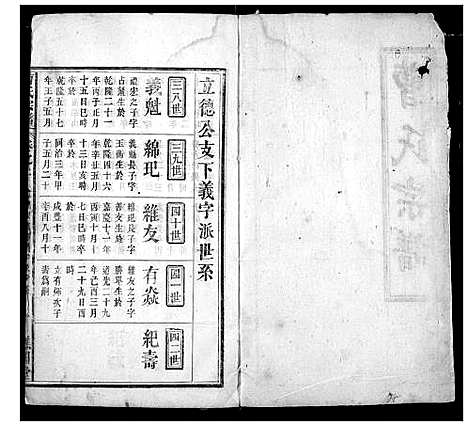 曹氏宗譜
立德公支下義字派世系
三八世
義魁
禮宏之子字
占魁生於
乾隆二十一
年丙子正月
十五日巳時
乾隆五十七
年壬子五月
三九世
綿玘
義魁長子字
玉衡生於
乾隆四十六
年辛丑五月
十三日亥時
同治三年甲
子五月二十
四十世
維友
綿玘之子字
善友生於
嘉慶十一年
丙寅十月十
七日巳時卒
咸豐十一年
辛酉八月十
四一世
有焱
維友之子字
勝單生於
道光二十九
年己酉三月
二十九日酉
時
立有烣次子
壽爲嗣
四二世
紀壽